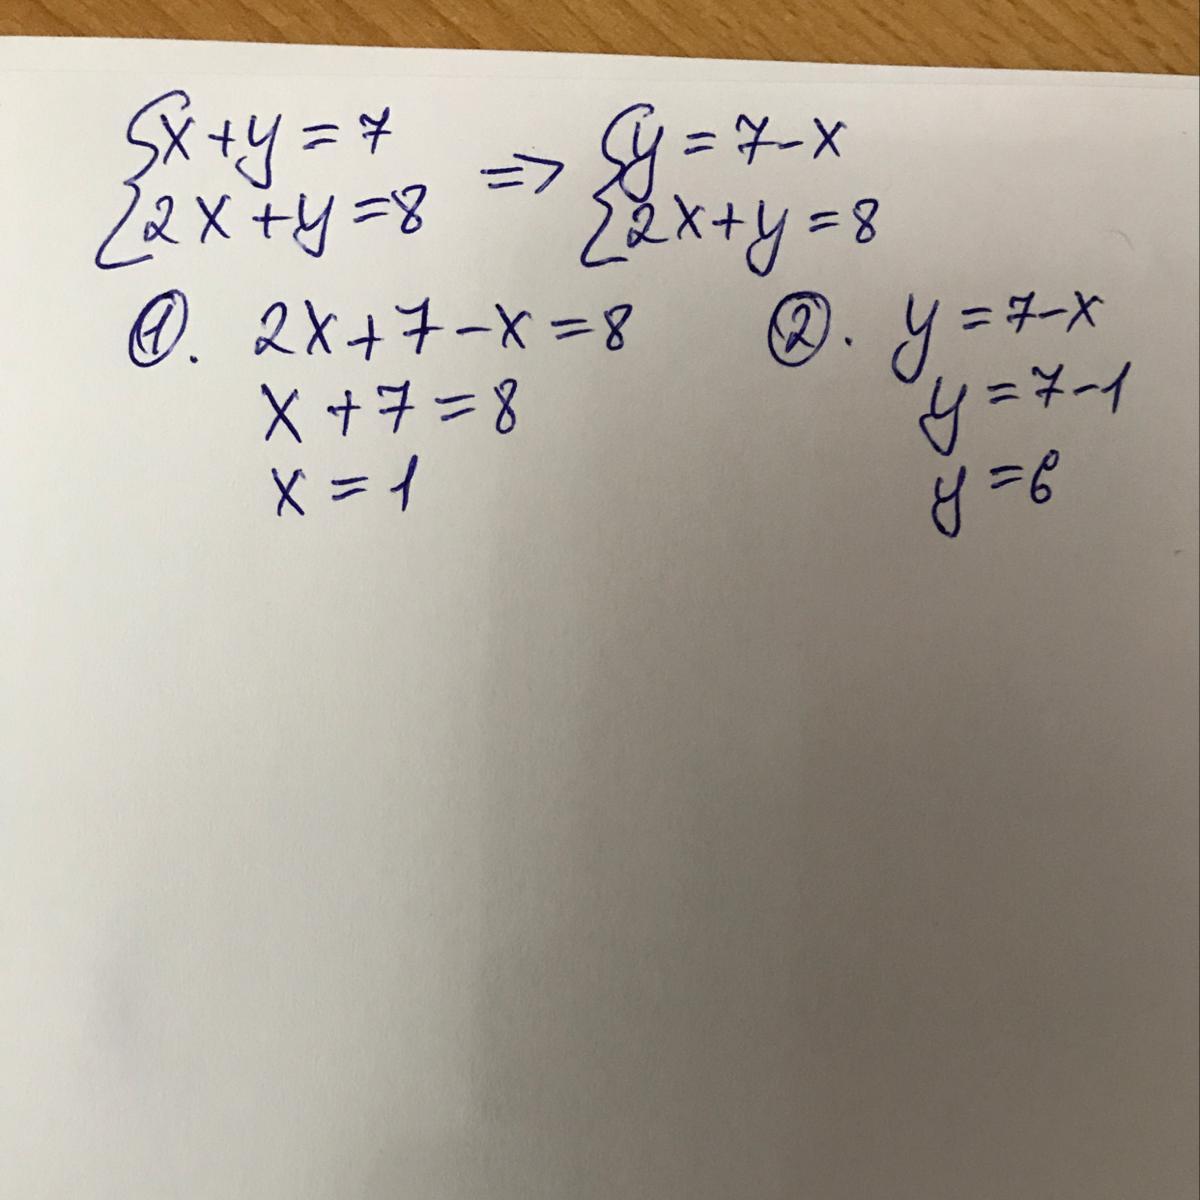 {x+y=7 => {y=7-x
{2x+y=8 {2x+y=8
①. 2x+7-x=8
x+7=8
x=1
②. y=7-x
y=7-1
y=6